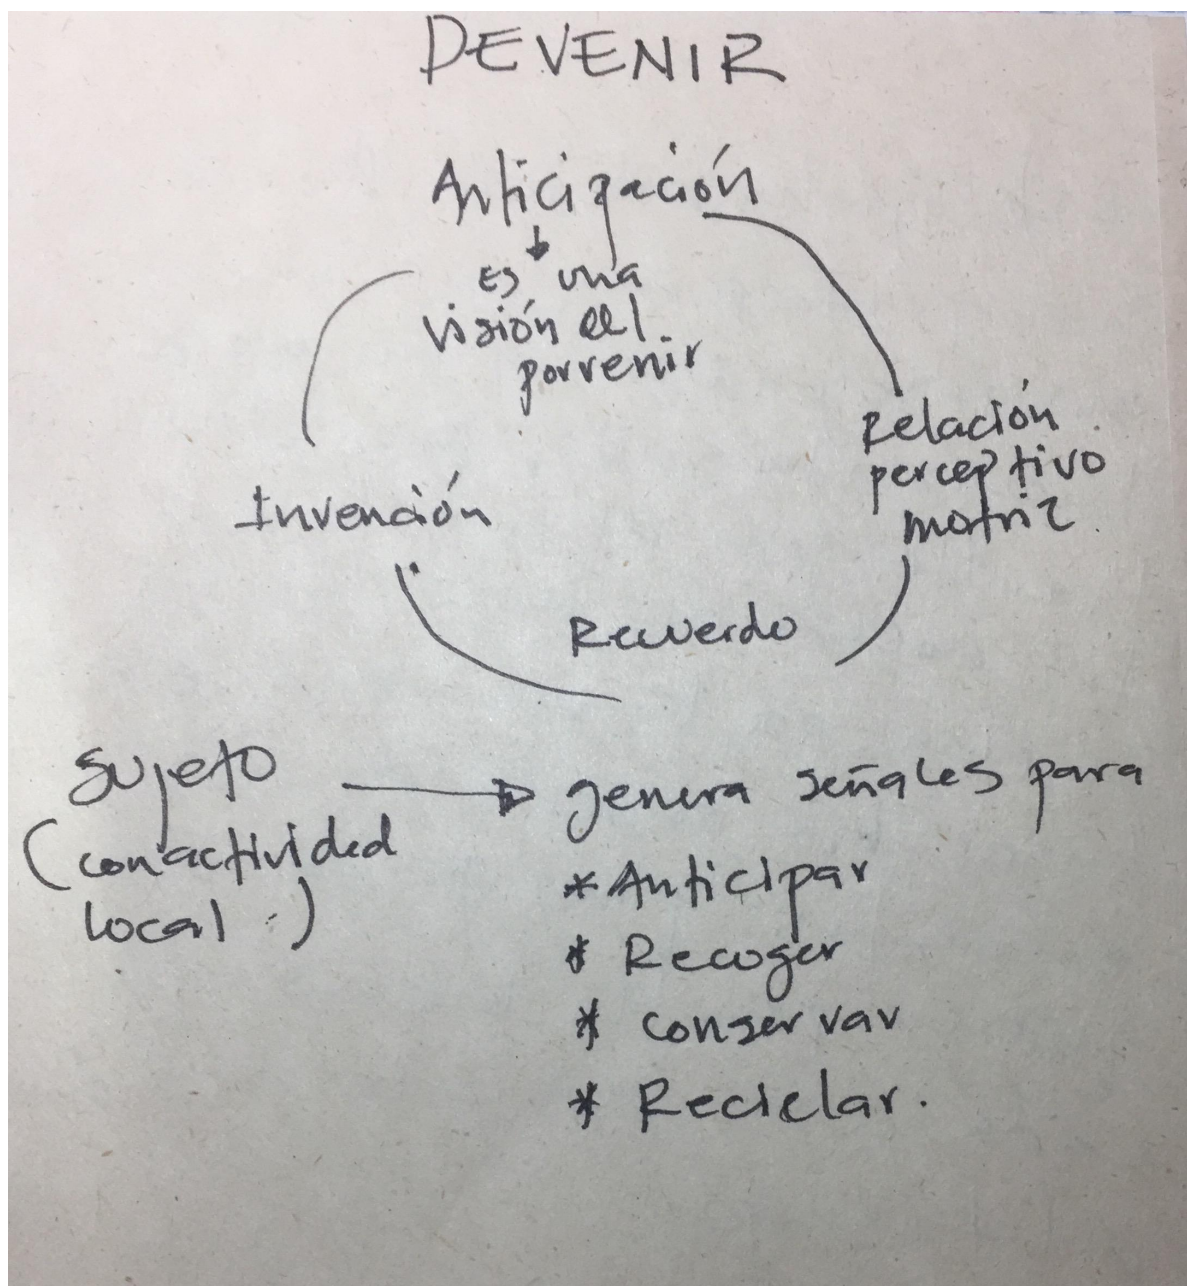 DEVENIR
Anticipación
Es una
visión del
porvenir
Relación
perceptivo
motriz.
Invención
Recuerdo
Sujeto
(con actividad
local.)
genera señales para
* Anticipar
* Recoger
* conservar
* Reciclar.